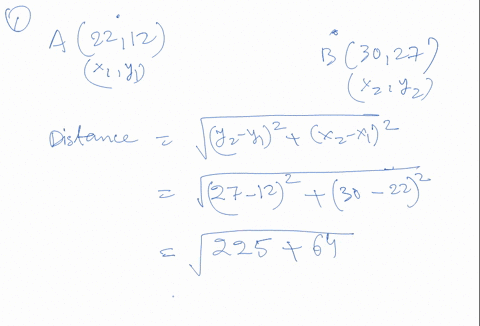 ①
A (22,12) B (30,27)
(x₁,y₁) (x₂,y₂)
Distance = √(y₂-y₁)² + (x₂-x₁)²
= √(27-12)² + (30-22)²
= √225 + 64